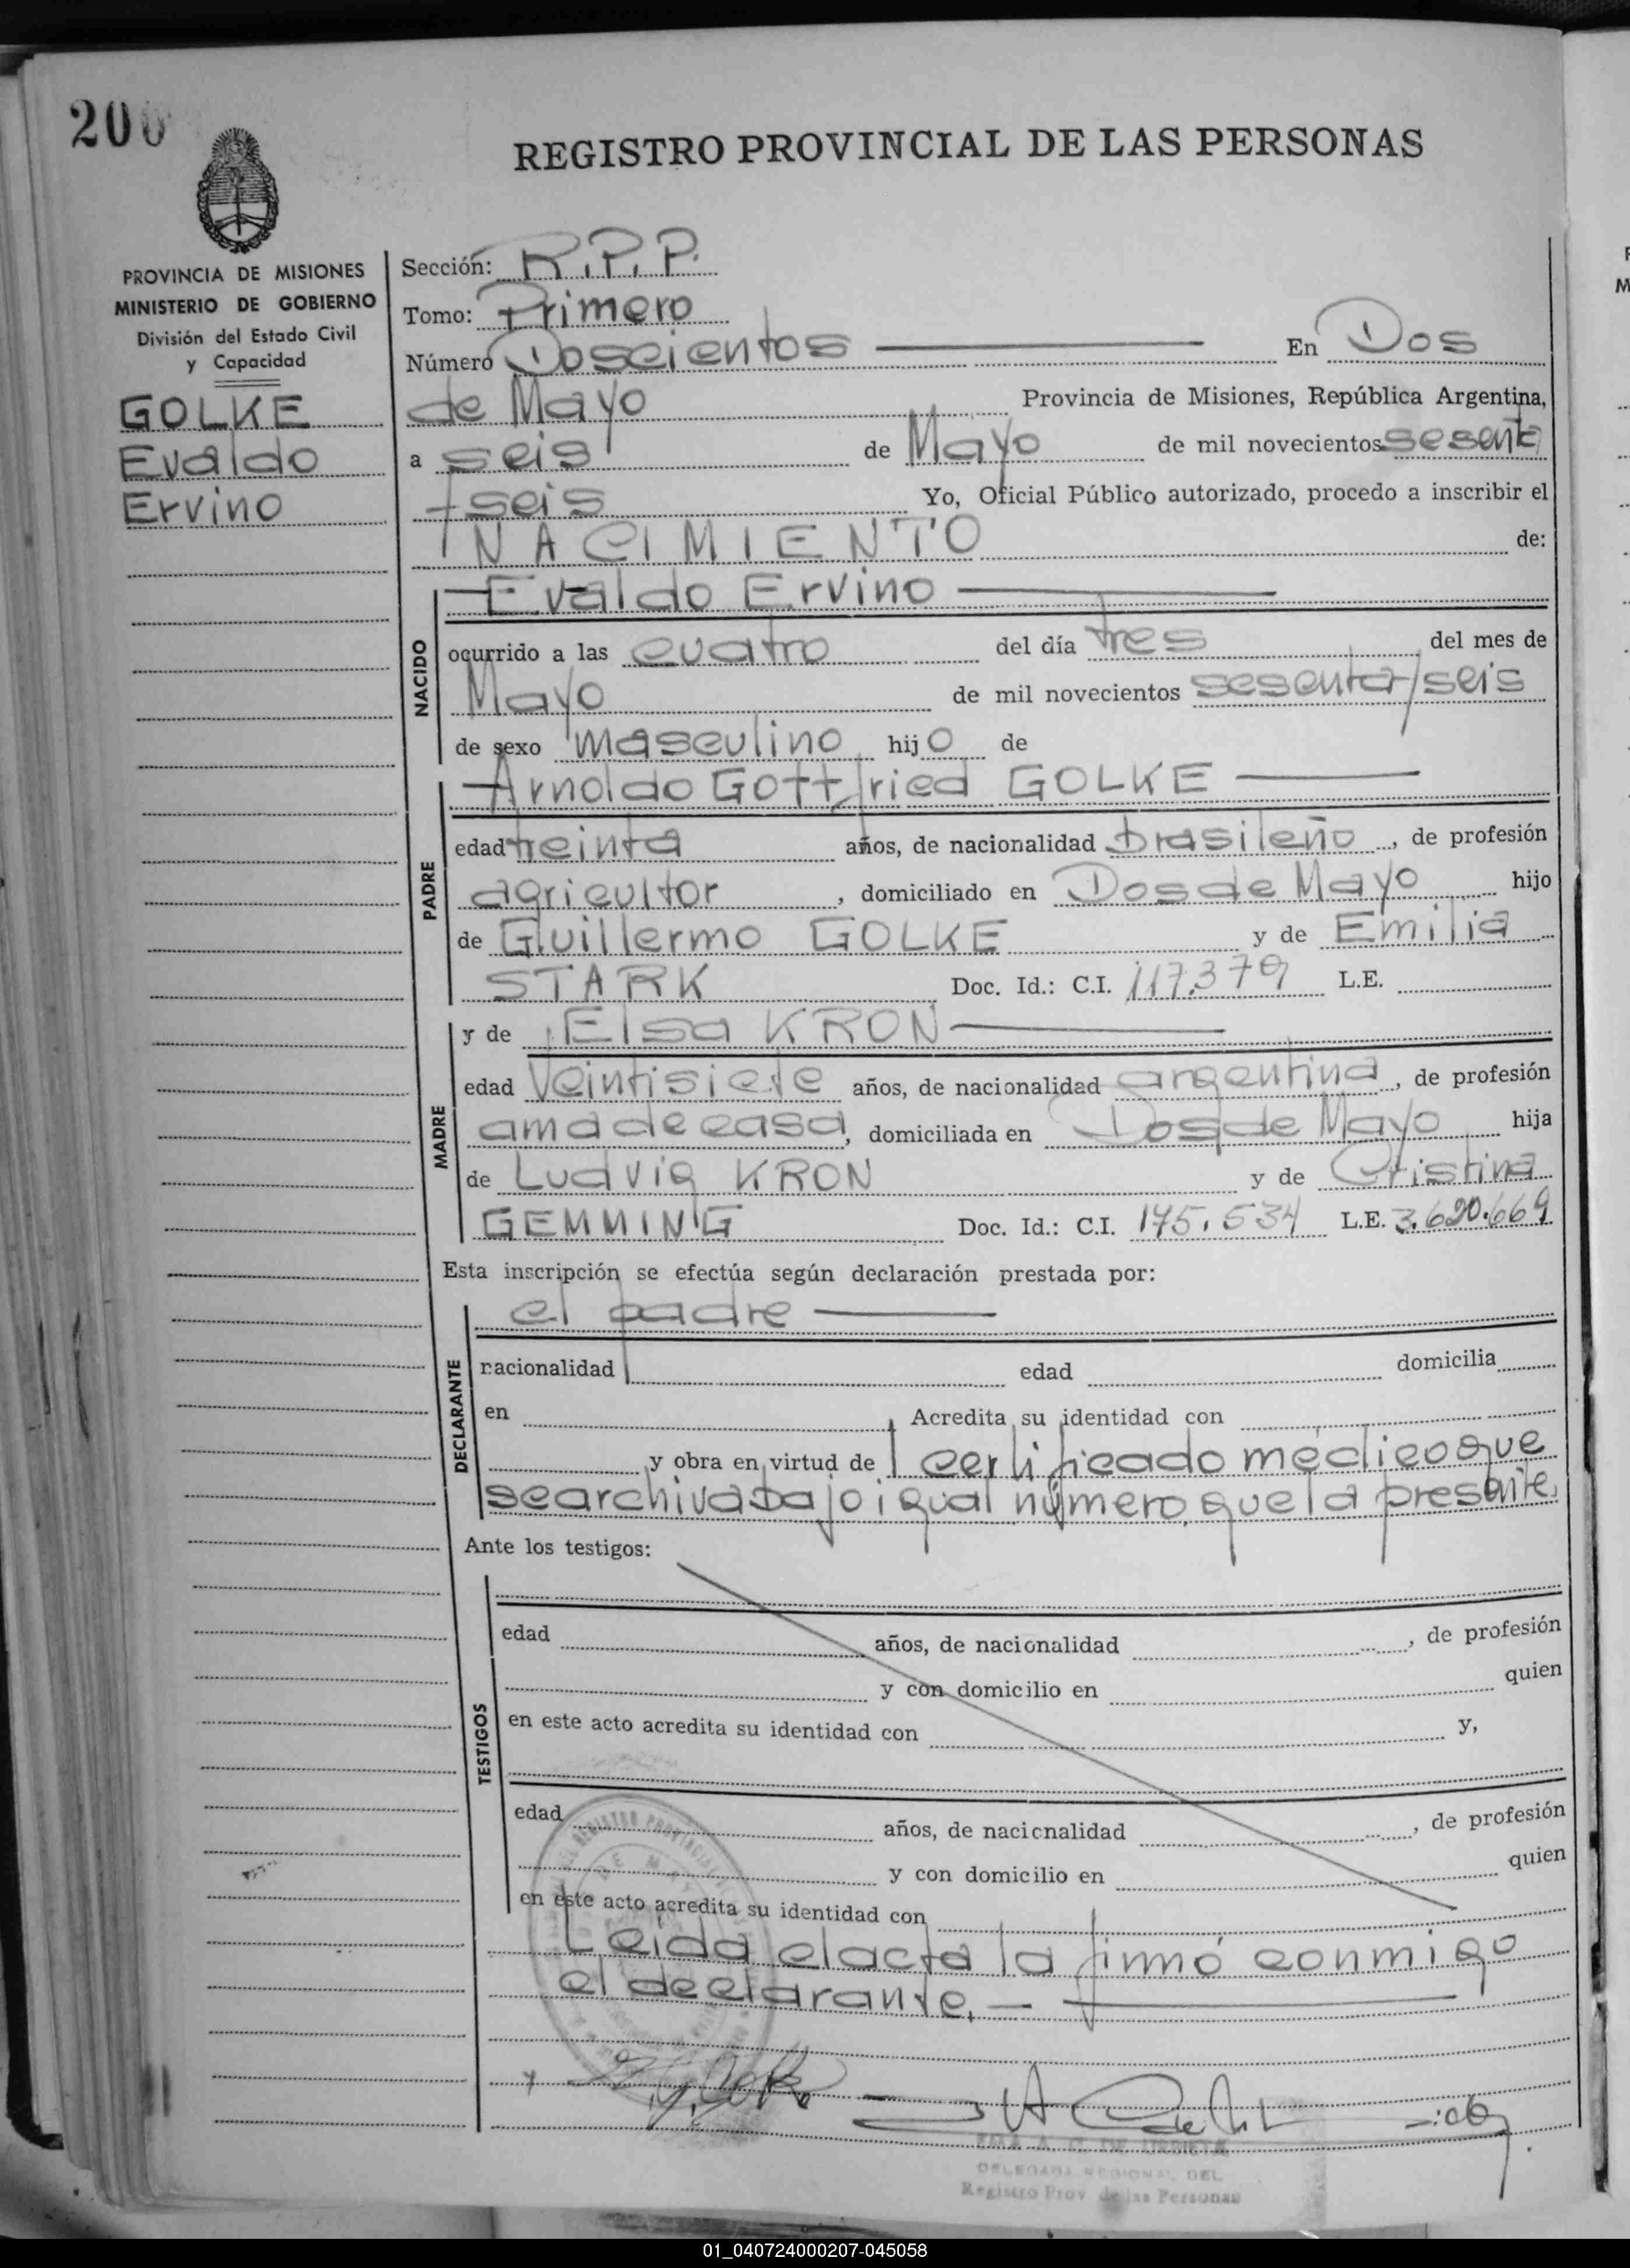 200
REGISTRO PROVINCIAL DE LAS PERSONAS
PROVINCIA DE MISIONES
MINISTERIO DE GOBIERNO
División del Estado Civil
y Capacidad
GOLKE
Evaldo
Ervino
Sección: R.P.P.
Tomo: Primero
Número Doscientos En Dos
de Mayo Provincia de Misiones, República Argentina,
a seis de Mayo de mil novecientos sesenta
y seis Yo, Oficial Público autorizado, procedo a inscribir el
NACIMIENTO de:
NACIDO
Evaldo Ervino
ocurrido a las cuatro del día tres del mes de
Mayo de mil novecientos sesenta y seis
de sexo masculino hijo de
PADRE
Arnoldo Gottfried GOLKE
edad treinta años, de nacionalidad brasileño, de profesión
agricultor, domiciliado en Dos de Mayo hijo
de Guillermo GOLKE y de Emilia
STARK Doc. Id.: C.I. 117.379 L.E.
MADRE
y de Elsa KRON
edad veintisiete años, de nacionalidad argentina, de profesión
ama de casa, domiciliada en Dos de Mayo hija
de Ludvig KRON y de Cristina
GEMMING Doc. Id.: C.I. 175.534 L.E. 3.620.669
Esta inscripción se efectúa según declaración prestada por:
DECLARANTE
el padre
nacionalidad edad domicilia
en Acredita su identidad con
y obra en virtud de certificado médico que
se archiva bajo igual número que la presente.
Ante los testigos:
TESTIGOS
edad años, de nacionalidad , de profesión
y con domicilio en quien
en este acto acredita su identidad con y,
edad años, de nacionalidad , de profesión
y con domicilio en quien
en este acto acredita su identidad con
Leida el acta la firmó conmigo
el declarante.
REGISTRO PROVINCIAL
DELEGADA REGIONAL DEL
Registro Prov de las Personas
01_040724000207-045058